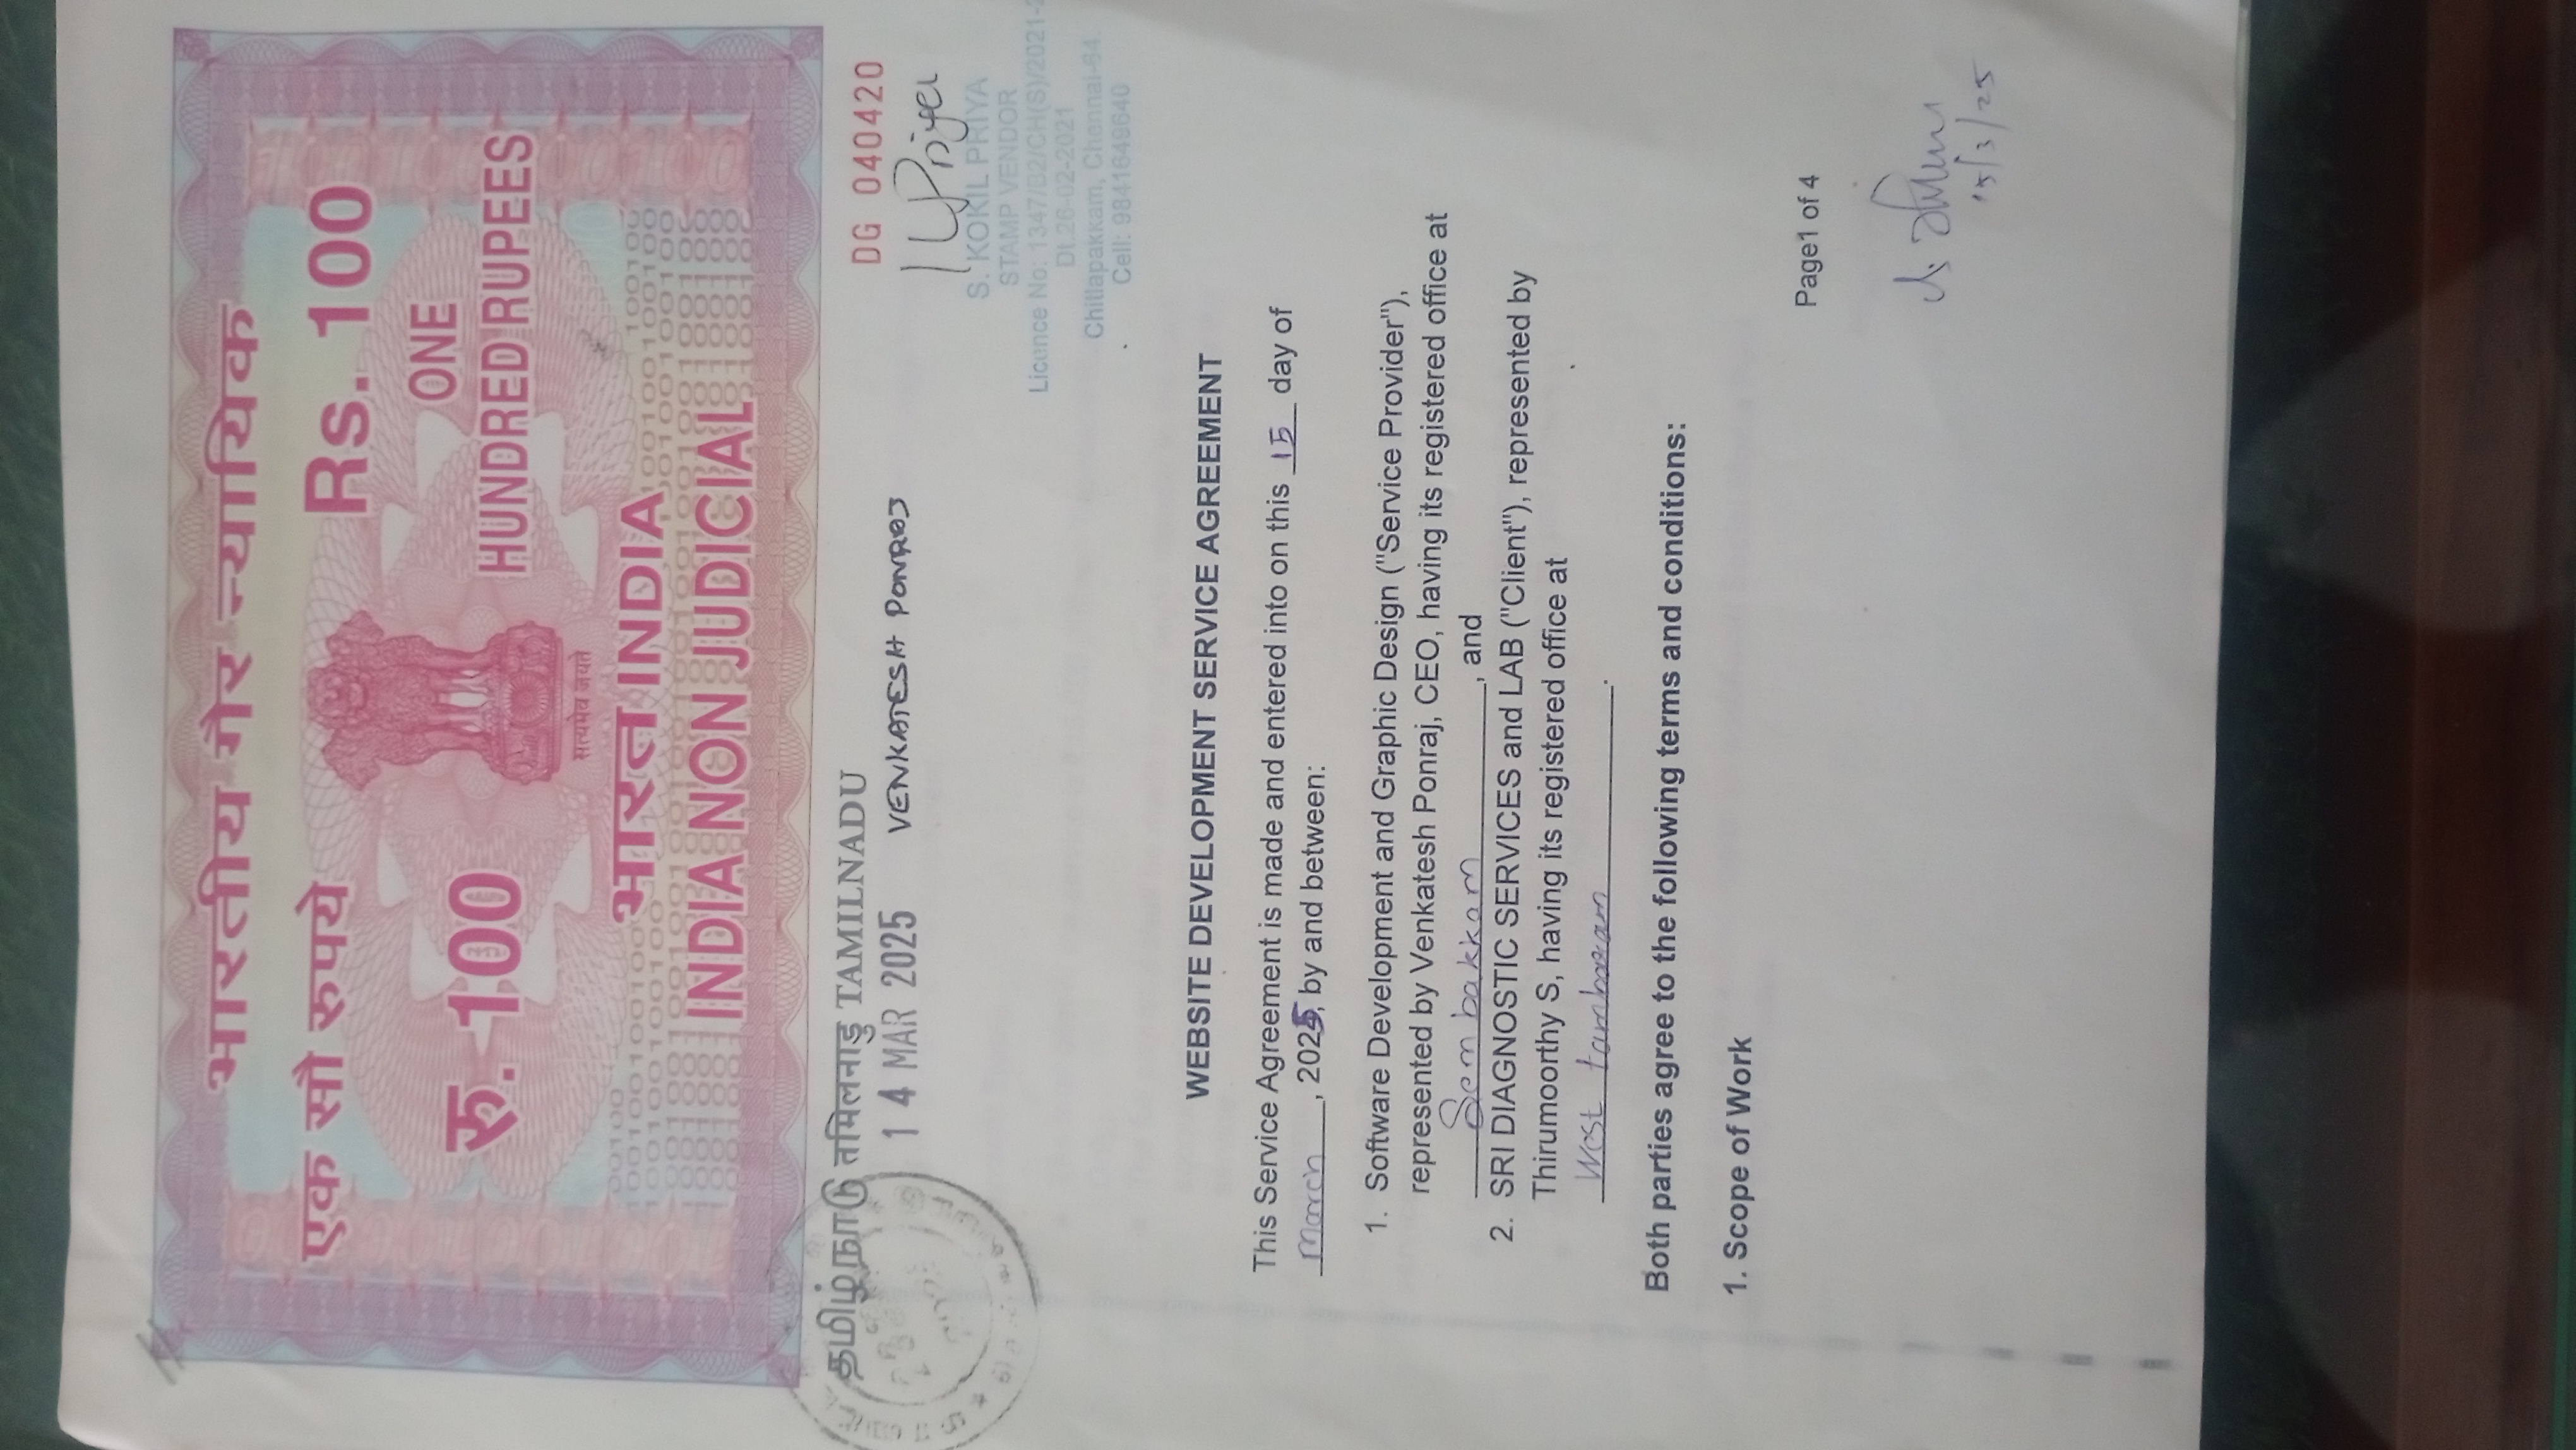 भारतीय गैर न्यायिक
एक सौ रुपये
Rs. 100
रु. 100
ONE
HUNDRED RUPEES
सत्यमेव जयते
भारत INDIA
INDIA NON JUDICIAL
தமிழ்நாடு तमिलनाडु TAMILNADU
DG 040420
14 MAR 2025 VENKATESH PONRAJ
S. KOKIL PRIYA
STAMP VENDOR
Licence No: 1347/B2/CH(S)/2021-2
Dt.26-02-2021
Chitlapakkam, Chennai-64.
Cell: 9841649640
WEBSITE DEVELOPMENT SERVICE AGREEMENT
This Service Agreement is made and entered into on this 15 day of
March, 2025, by and between:
1. Software Development and Graphic Design ("Service Provider"),
represented by Venkatesh Ponraj, CEO, having its registered office at
Sembakkam, and
2. SRI DIAGNOSTIC SERVICES and LAB ("Client"), represented by
Thirumoorthy S, having its registered office at
West tambaram.
Both parties agree to the following terms and conditions:
1. Scope of Work
Page1 of 4
15/3/25